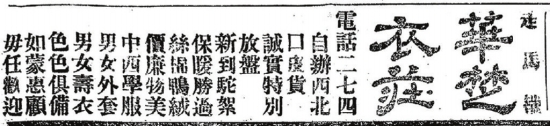 走馬樓
華楚
衣莊
電話二七四
自辦西北
口貨
誠實特別
放盤
新到駝絮
保暖勝過
絲棉鴨絨
價廉物美
中西學服
男女外套
男女壽衣
色色俱備
如蒙惠顧
毋任歡迎